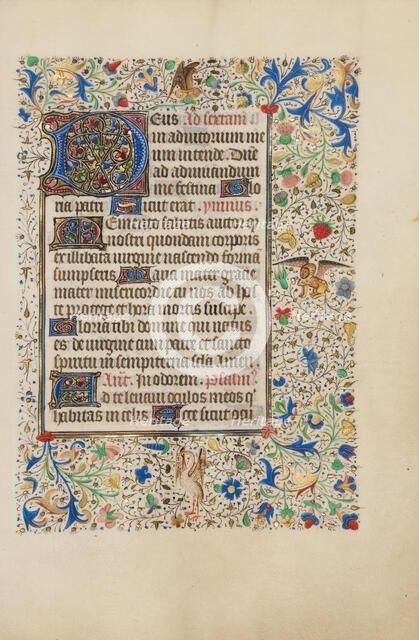 Deus Ad sextam
in adiutorium me
um intende. Dne
ad adiuuandum
me festina Glo
ria patri Sicut erat. ymnus.
Memento salutis auctor
nostri quondam corporis
ex illibata uirgine nascendo formā
sumpseris Maria mater gracie
mater misericordie tu nos ab hos
te protege et hora mortis suscipe
Gloria tibi domine qui natus
es de uirgine cum patre et sancto
spiritu in sempiterna secla Amen
Ant. In odorem. Psalm
Ad te leuaui oculos meos q
habitas in celis Ecce sicut oculi